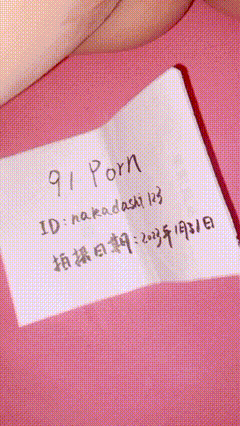 91 Porn
ID:nakadashi123
拍摄日期:2023年1月31日